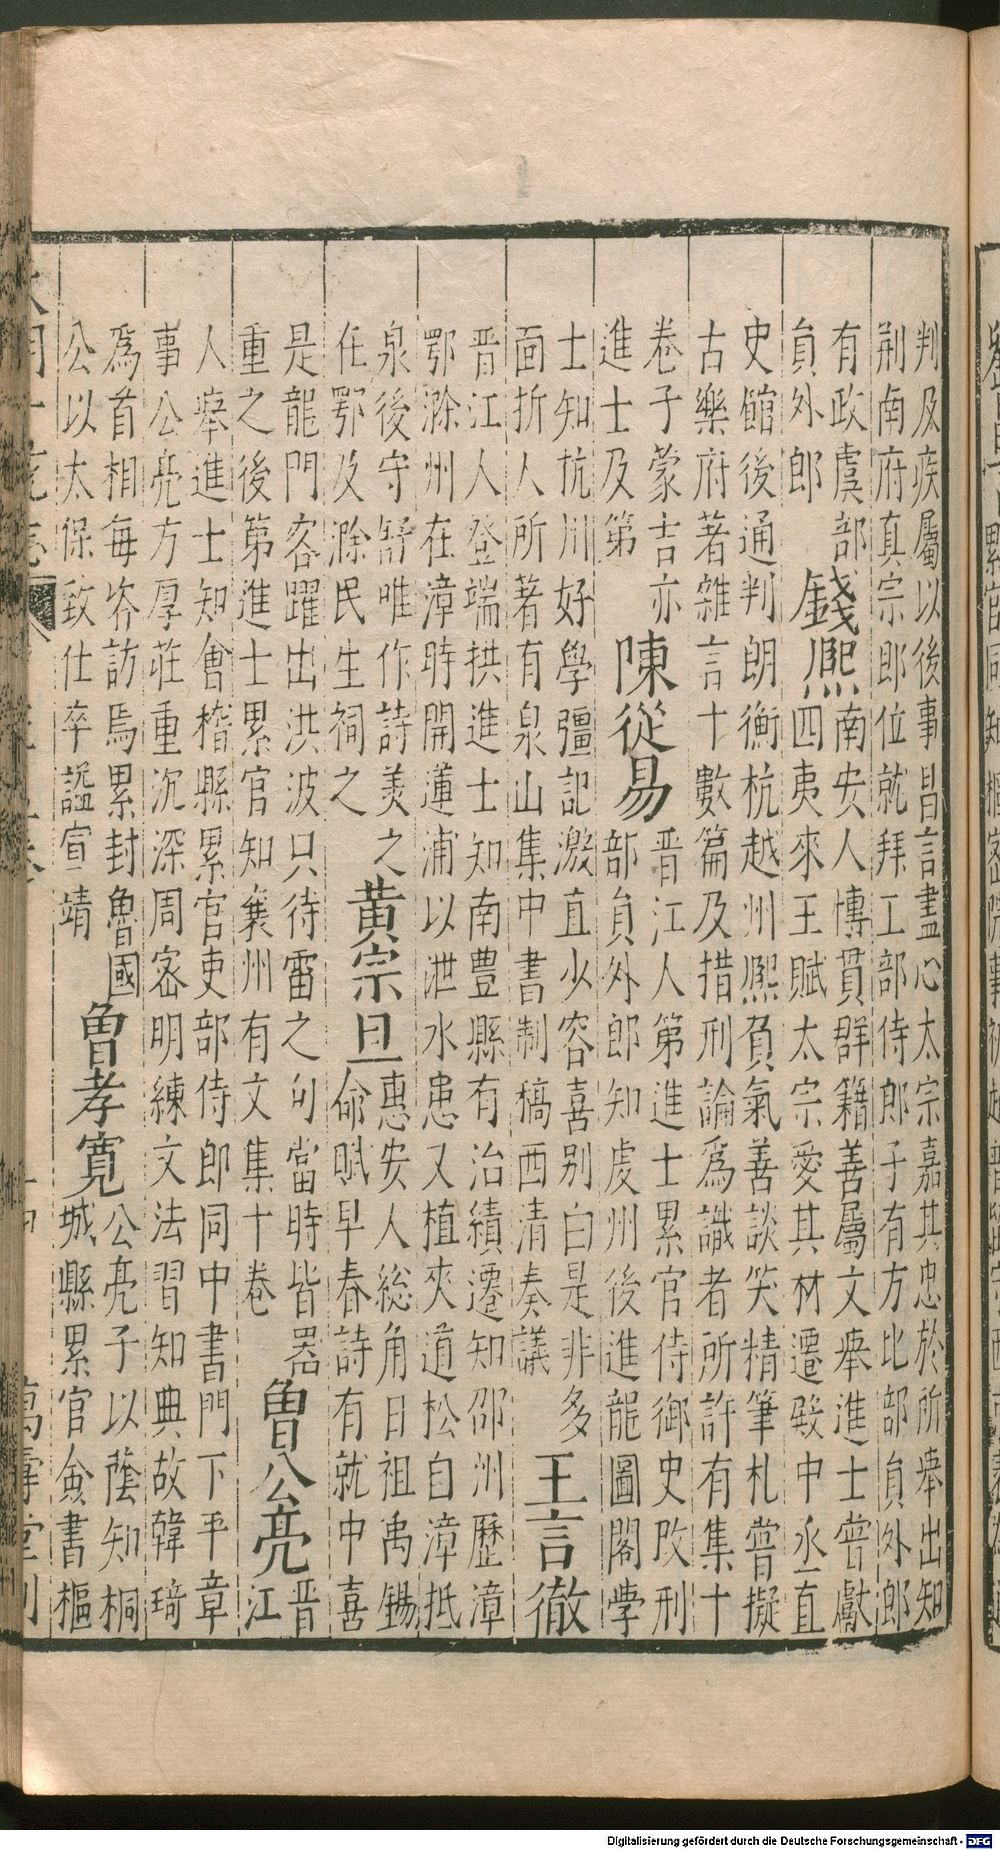 判及疾屬以後事昌言盡心太宗嘉其忠於所舉出知
荆南府真宗郎位就拜工部侍郎子有方比部員外郎
有政虞部
員外郎
錢熙
南安人博貫群籍善屬文舉進士甞獻
四夷來王賦太宗愛其材遷殿中丞直
史館後通判朗衡杭越州熙負氣善談笑精筆札嘗擬
古樂府著雜言十數篇及措刑論爲識者所許有集十
卷子蒙吉亦
進士及第
陳從易
晋江人第進士累官侍御史改刑
部員外郎知虔州後進龍圖閣學
士知杭川好學彊記激直少容喜别白是非多
面折人所著有泉山集中書制稿西清奏議
王言徹
晋江人登端拱進士知南豊縣有治績遷知邵州歷漳
鄂滁州在漳時開蓮浦以泄水患又植夾道松自漳抵
泉後守舒唯作詩美之
在鄂及滁民生祠之
黄宗旦
惠安人総角日祖禹錫
命賦早春詩有就中喜
是龍門客躍出洪波只待雷之句當時皆器
重之後第進士累官知襄州有文集十卷
曾公亮
晋
江
人舉進士知會稽縣累官吏部侍郎同中書門下平章
事公亮方厚莊重沉深周宻明練文法習知典故韓琦
爲首相每咨訪焉累封魯國
公以太保致仕卒謚宣靖
曾孝寬
公亮子以蔭知桐
城縣累官僉書樞
Digitalisierung gefördert durch die Deutsche Forschungsgemeinschaft - DFG